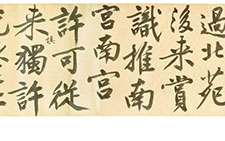 過北苑
後来賞
識推南
宮南宮
許可從
来獨許